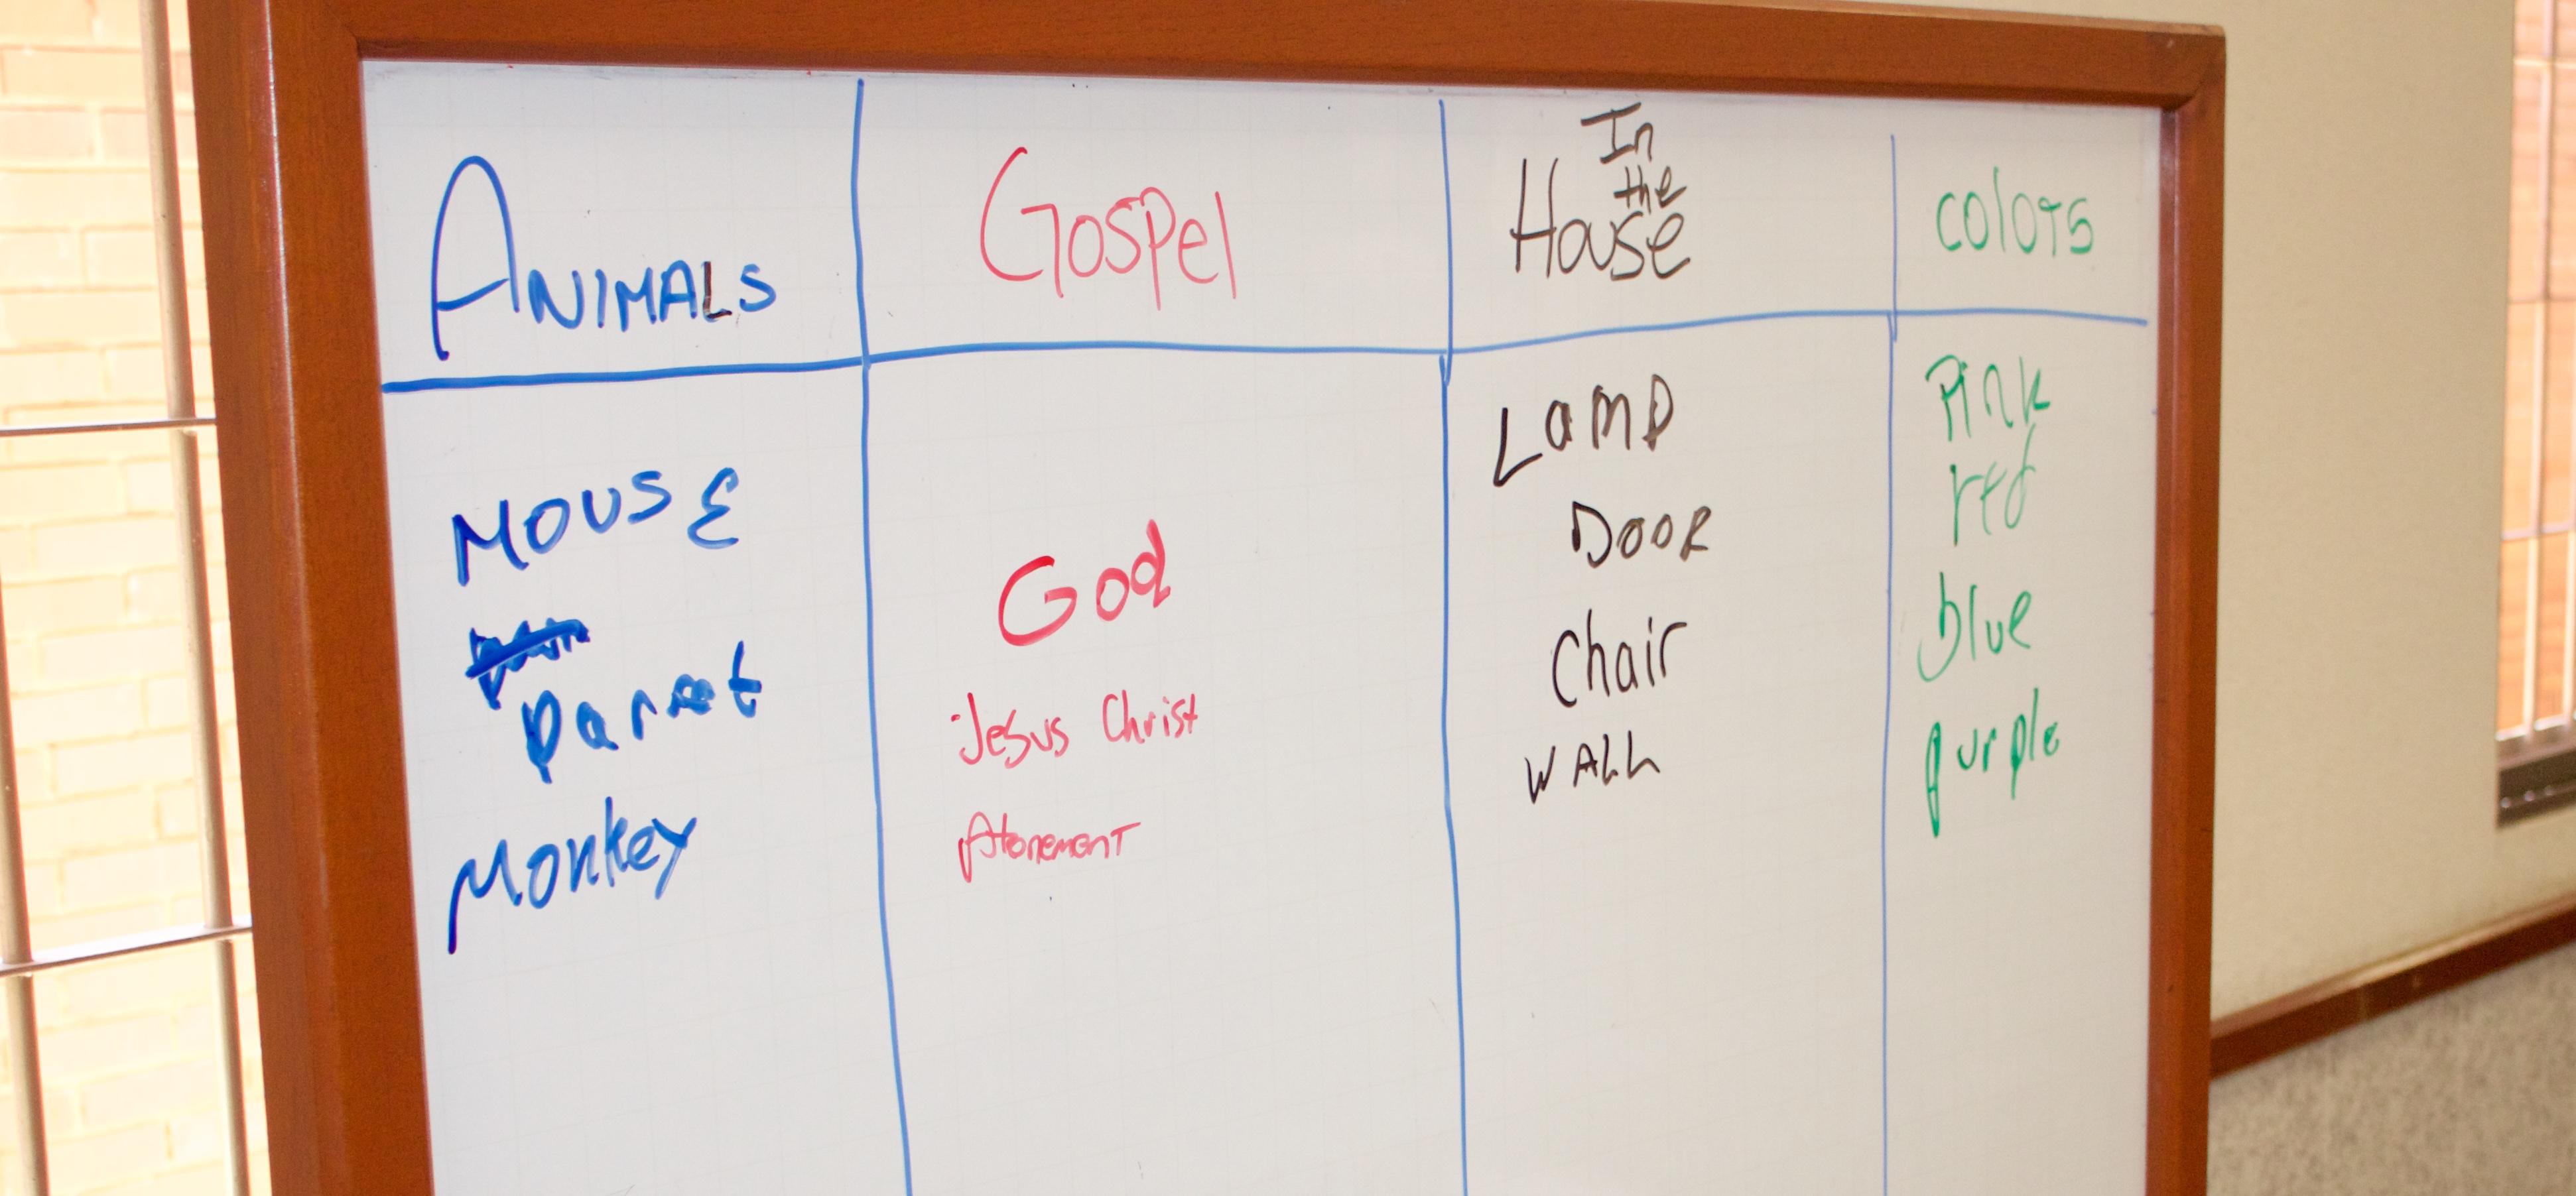 ANIMALS
MOUSE
Monkey
Gospel
God
Jesus Christ
Atonement
In
the
House
Lamp
DOOR
Chair
WALL
colors
Pink
red
blue
purple